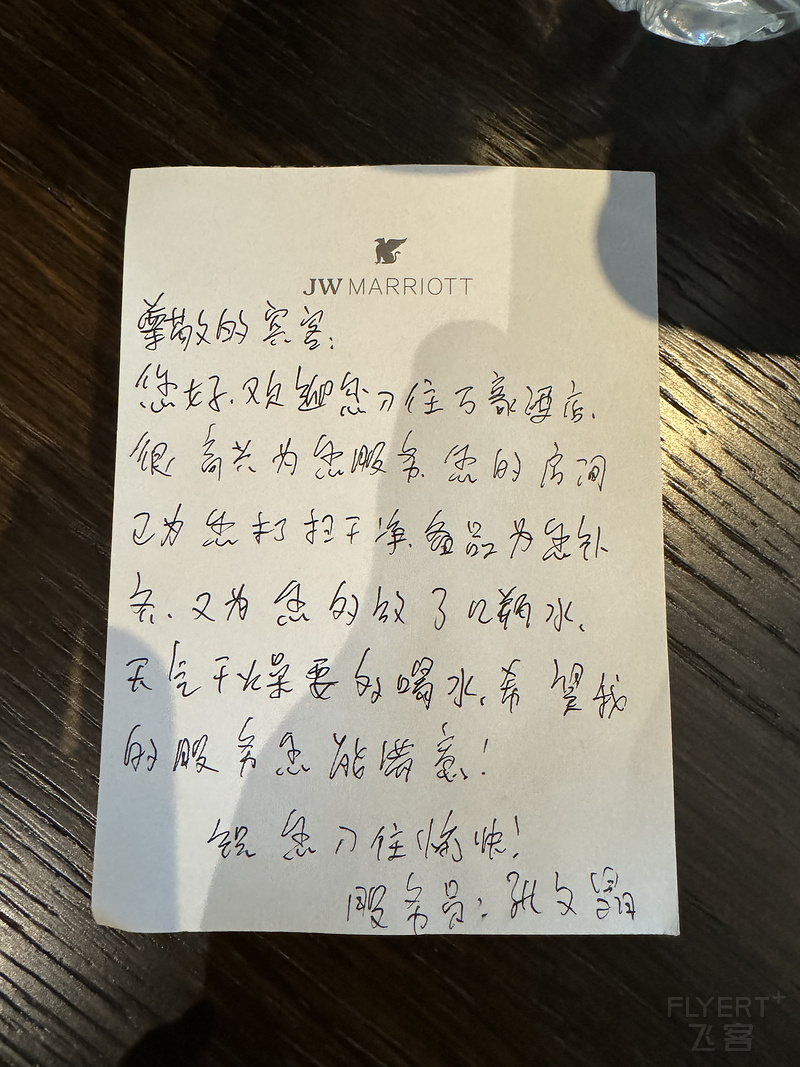 JW MARRIOTT
尊敬的宾客:
您好.欢迎您入住万豪酒店.
很高兴为您服务.您的房间
已为您打扫干净.备品为您补
齐.又为您多放了几瓶水.
天气干燥要多喝水.希望我
的服务您能满意!
祝您入住愉快!
服务员:张文
FLYERT+
飞客